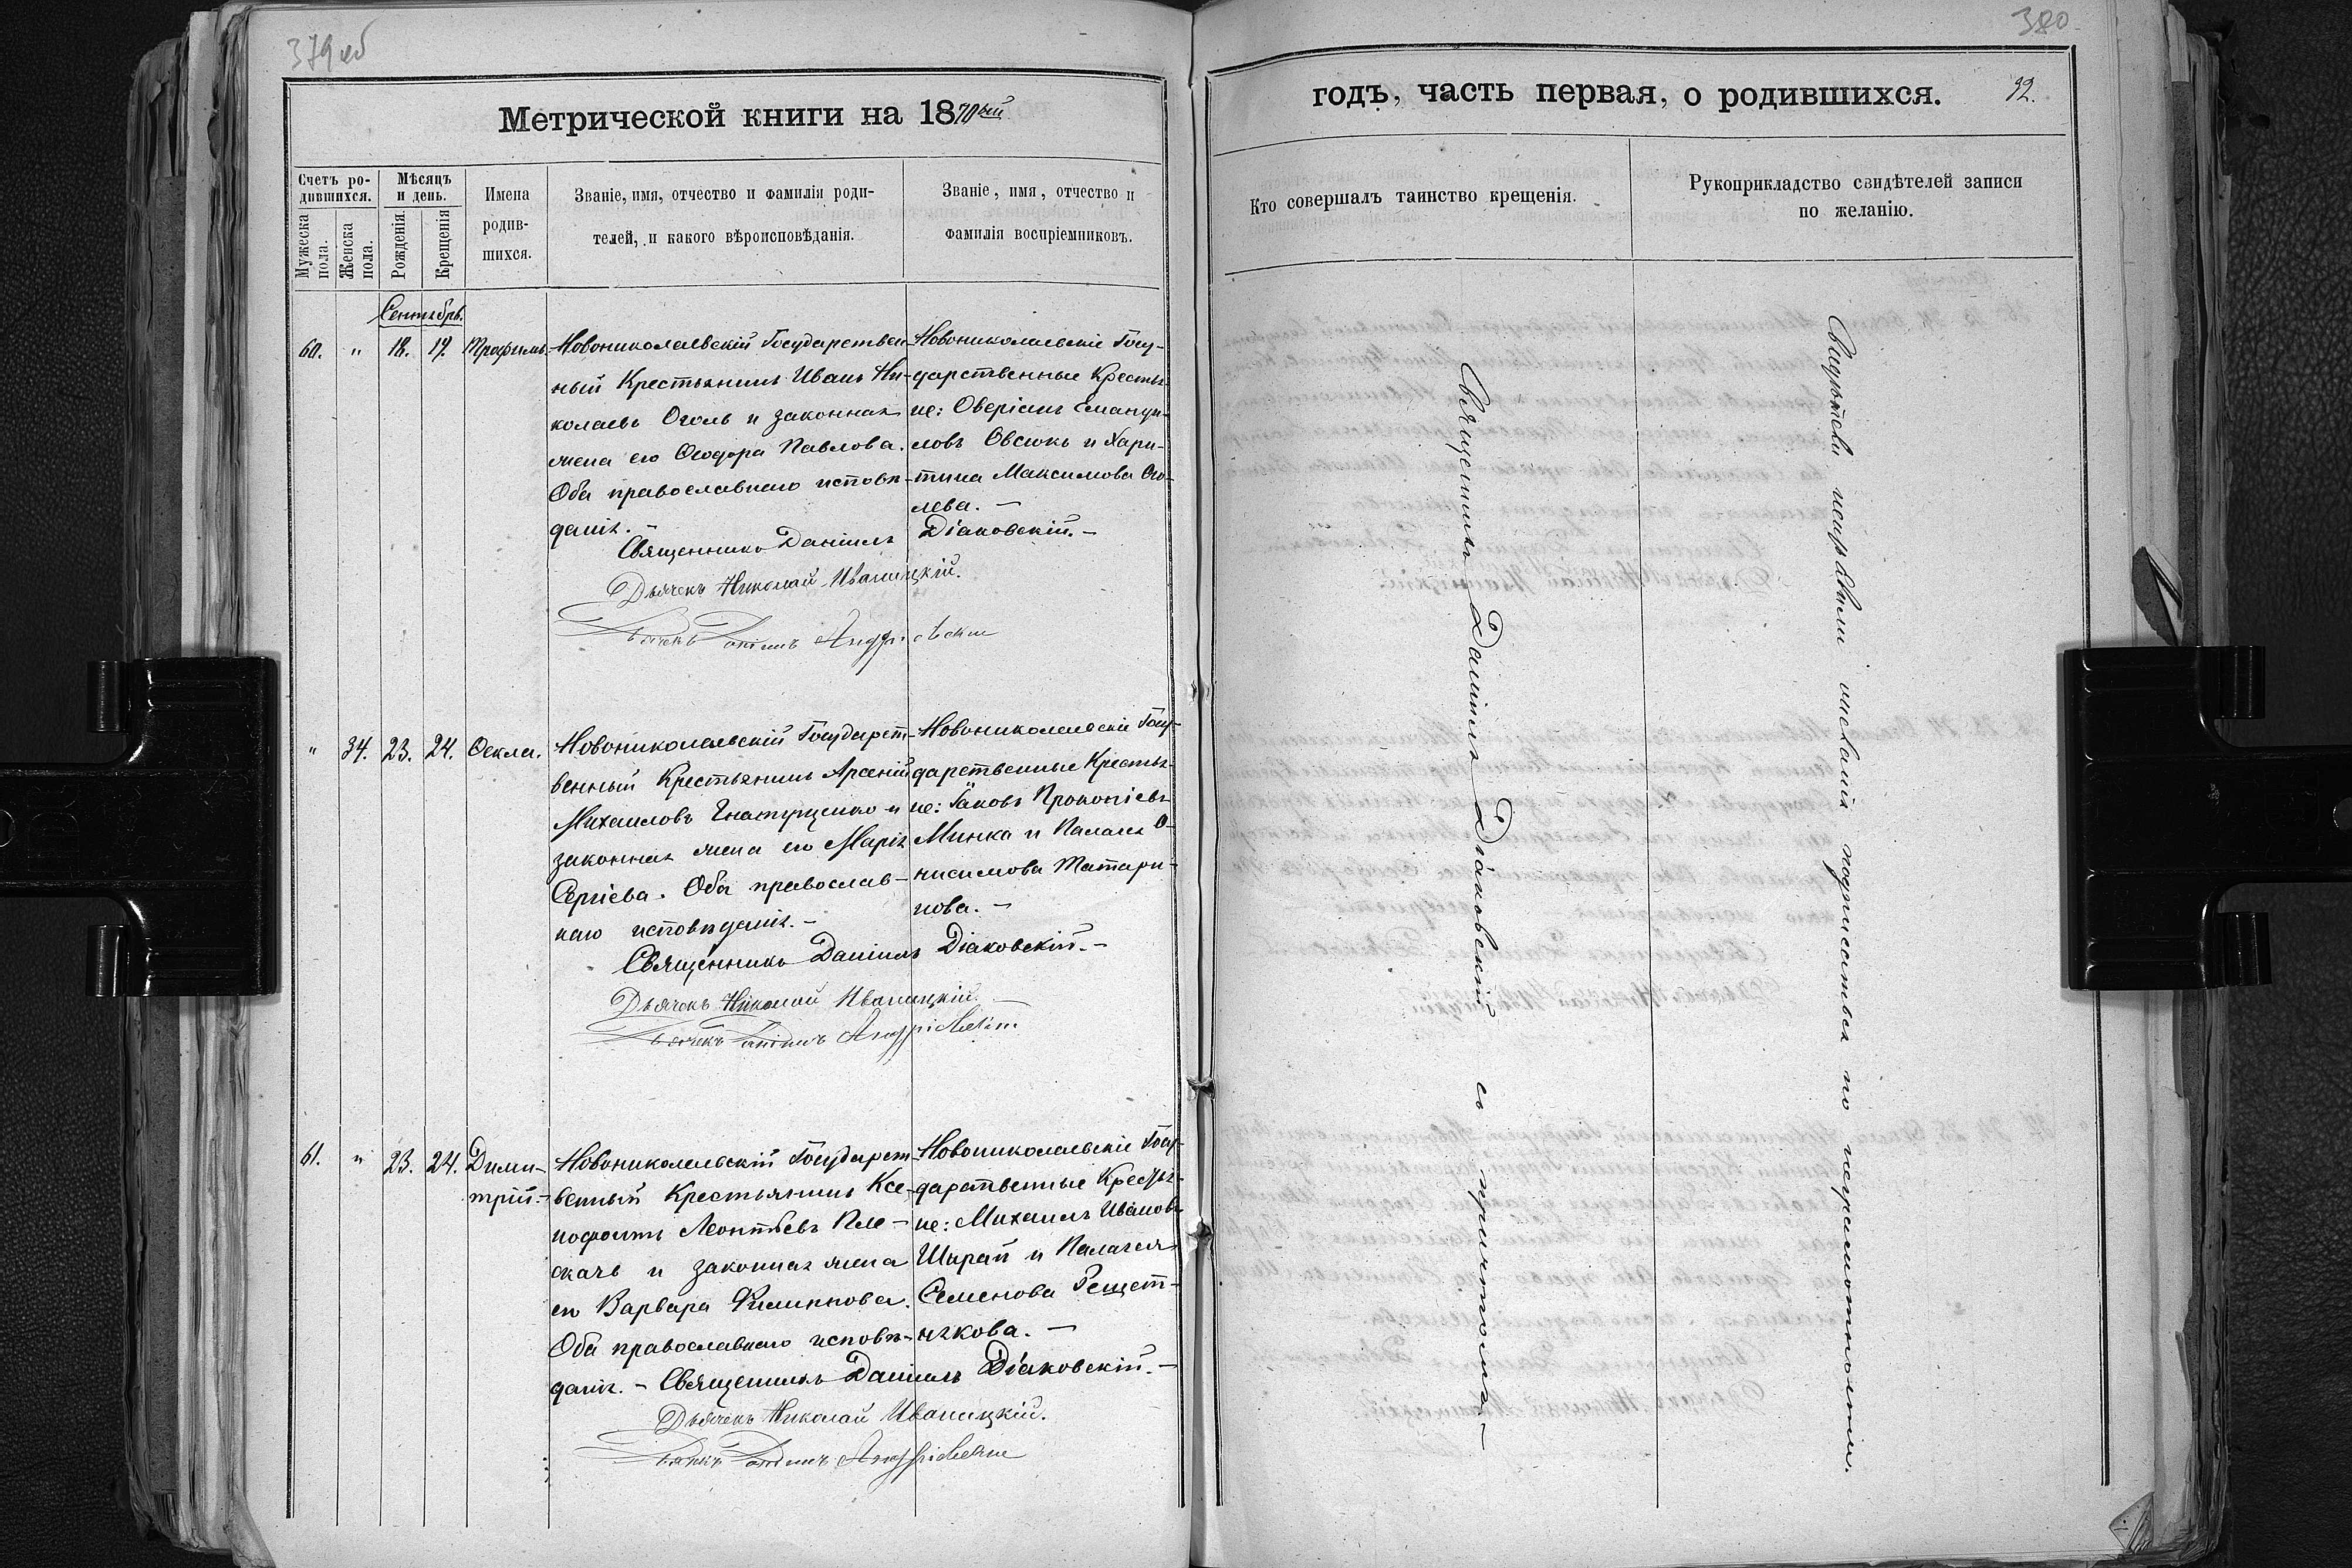 379 об
Метрической книги на 1870ый
Счетъ ро-
дившихся.
Мужеска
пола.
Женска
пола.
Мѣсяцъ
и день.
Рожденія.
Крещенія
Имена
родив-
шихся.
Званіе, имя, отчество и фамилія роди-
телей, и какого вѣроисповѣданія.
Званіе, имя, отчество и
фамилія воспріемниковъ.
Сентябрь.
60. " 18. 19. Трофимъ.
Новониколаевскій Государствен-
ный Крестьянинъ Иванъ Ни-
колаевъ Оголь и законная
жена его Ѳеодора Павлова.
Оба православнаго исповѣ-
данія. –
Новониколаевскіе Госу-
дарственные Крестья-
не: Оверіанъ Емануи-
ловъ Овсюкъ и Хари-
тина Максимова Ого-
лева. –
Священникъ Даніилъ Діаковскій. –
Дьячекъ Николай Иваницкій.
" 34. 23. 24. Ѳекла.
Новониколаевскій Государст-
венный Крестьянинъ Арсеній
Михаиловъ Гнатущенко и
законная жена его Марія
Сергіева. Оба православ-
наго исповѣданія. –
Новониколаевскіе Госу-
дарственные Крестья-
не: Іаковъ Прокопіевъ
Минка и Палагея О-
нисимова Татари-
нова. –
Священникъ Даніилъ Діаковскій. –
Дьячекъ Николай Иваницкій.
61. " 23. 24. Дими-
трій. –
Новониколаевскій Государст-
венный Крестьянинъ Ксе-
нофонтъ Леонтьевъ Пле-
скачъ и законная жена
его Варвара Филиппова.
Оба православнаго исповѣ-
данія. –
Новониколаевскіе Госу-
дарственные Крестья-
не: Михаилъ Ивановъ
Шкрай и Палагея
Семенова Решет-
някова. –
Священникъ Даніилъ Діаковскій. –
Дьячекъ Николай Иваницкій.
380
годъ, часть первая, о родившихся. 92.
Кто совершалъ таинство крещенія.
Рукоприкладство свидѣтелей записи
по желанію.
Священникъ Даніилъ Діаковскій съ причтомъ –
Свидѣтели неизъявили желанія подписаться по неграмотности.